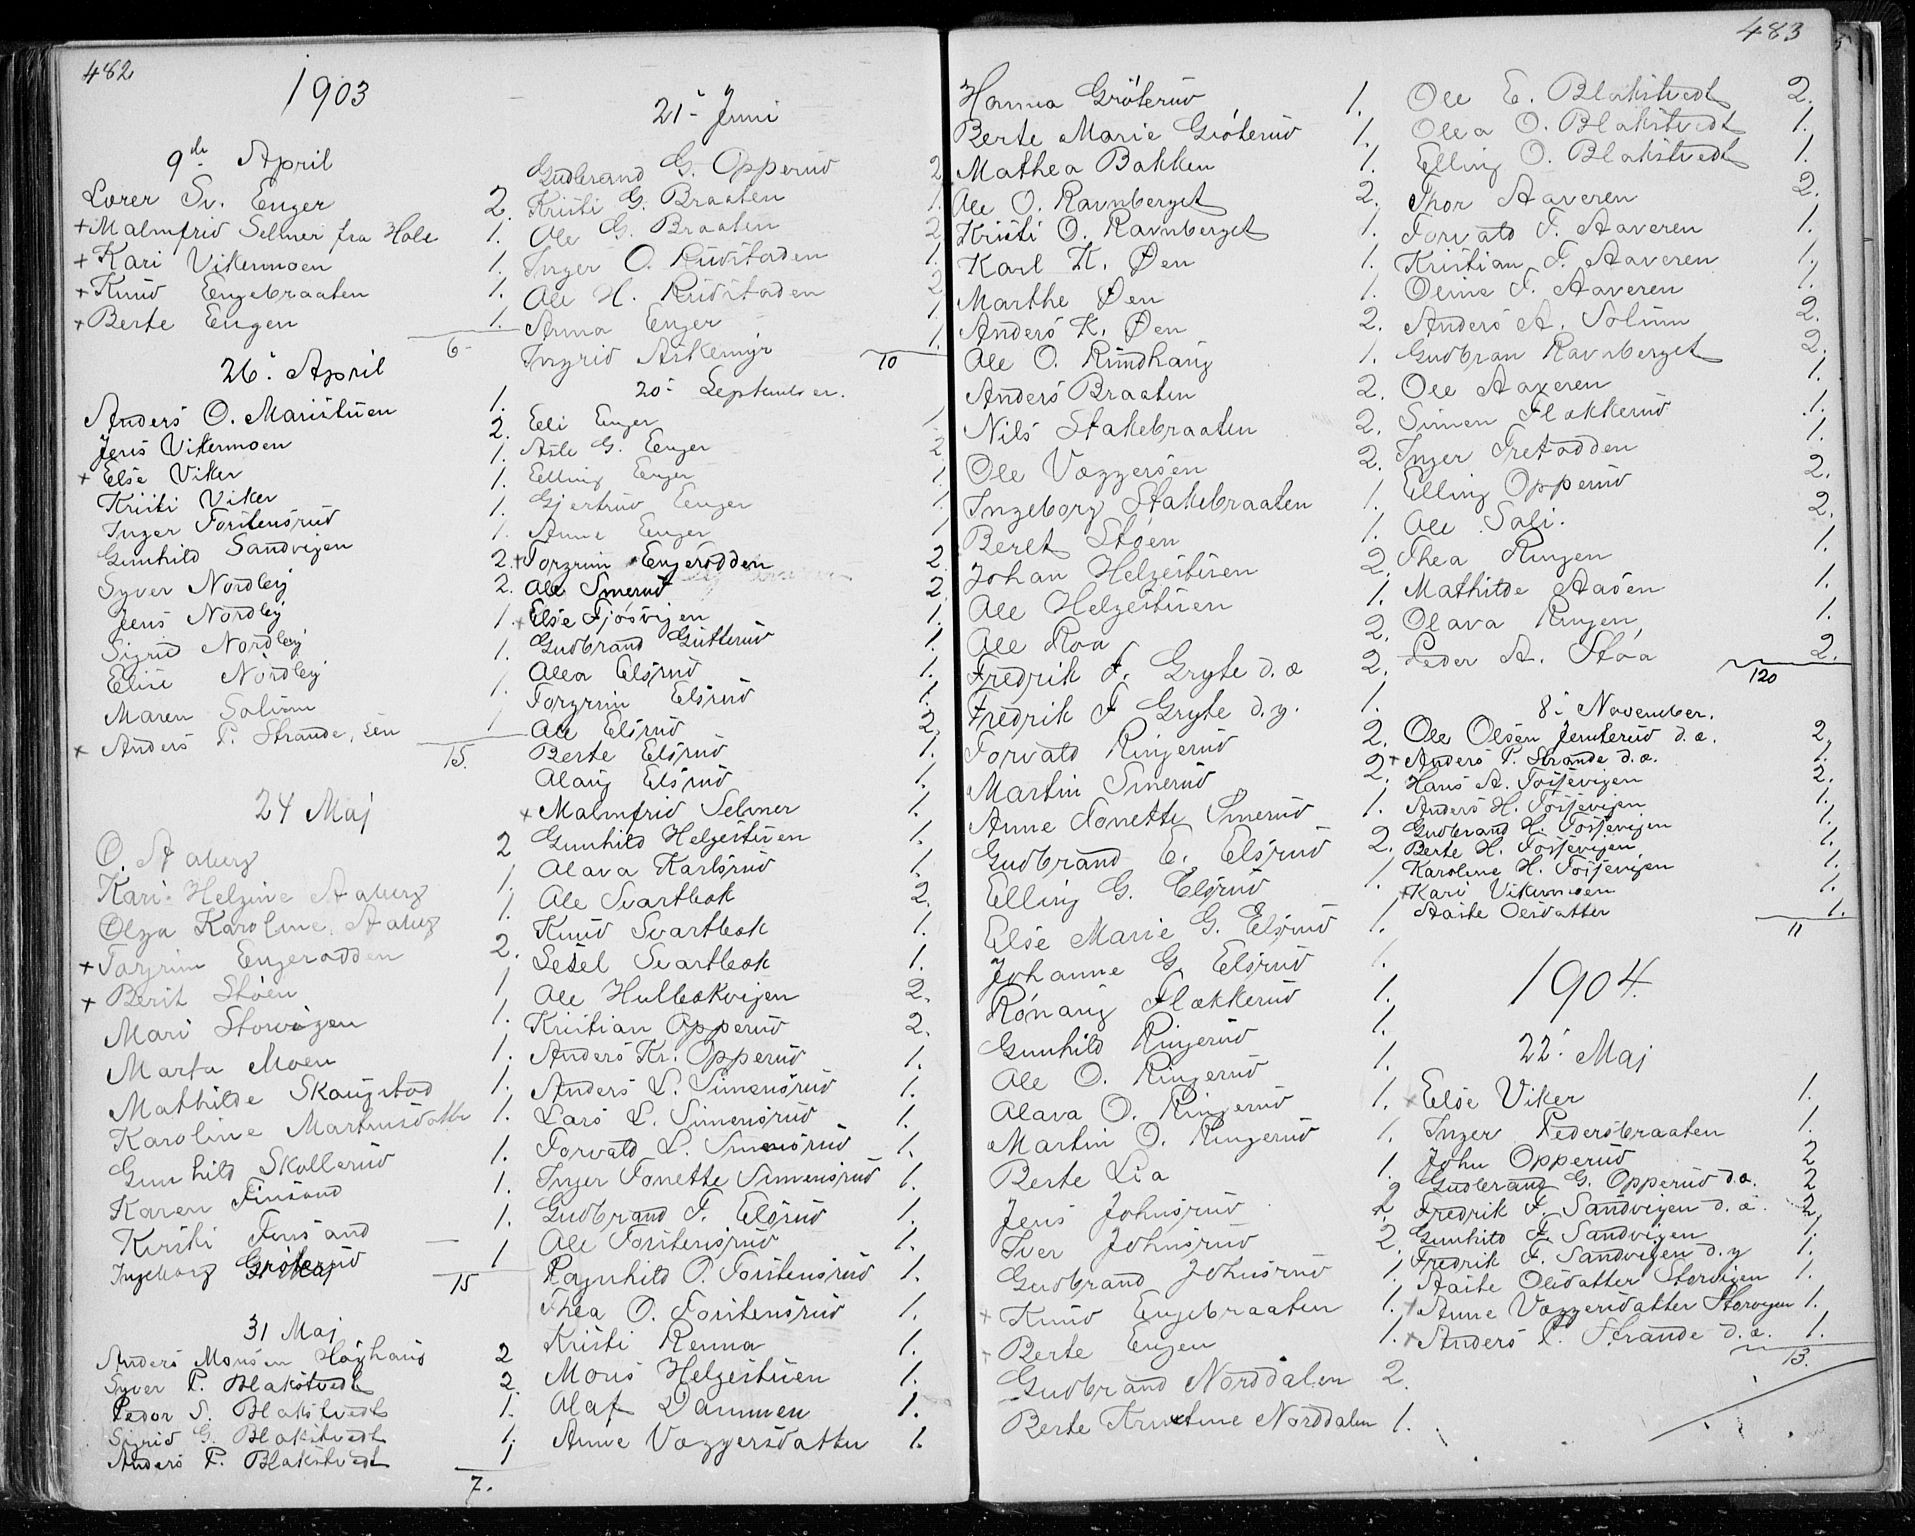 482
1903
9de April
Lærer Sv. Enger 2.
+ Malmfrid Selmer fra Hole 1.
+ Kari Vikermoen 1.
+ Knud Engebraaten 1.
+ Berte Engen 1.
6
26. April
Anders O. Maristuen 1.
Jens Vikermoen 2.
+ Else Viker 1.
Kristi Viker 1.
Inger Forstensrud 1.
Gunhild Sandvigen 1.
Syver Nordby 2.
Jens Nordby 2.
Sigrid Nordby 1.
Elise Nordby 1.
Maren Solum 1.
+ Anders P. Strande, sen 1
15.
24 Maj
O. Aaberg 2
Kari Helgine Aaberg 1.
Olga Karoline Aaberg 1.
+ Torgrim Engerodden 2.
+ Berit Støen 1
Mari Storvigen 1.
Marta Moen 1.
Mathilde Skaugstad 1.
Karoline Martinsdatter 1.
Gunhild Skollerud 1.
Karen Finsand 1.
Kristi Finsand 1.
Ingeborg Grøterud 1
15
31 Maj
Anders Monsen Høghaug 2
Syver P. Blakstvedt 2.
Peder S. Blakstvedt 1.
Sigrid G. Blakstvedt 1.
Anders P. Blakstvedt 1
7.
21. Juni
Gudbrand G. Opperud 2
Kristi G. Braaten 1.
Ole G. Braaten 2
Inger O. Rudstaden 1.
Ole H. Rudstaden 2
Anna Enger 1
Ingrid Askemyr 1.
10
20. September.
Eli Enger 1
Asle G. Enger 2
Elling Enger 1.
Gjertrud Enger 1.
Anne Enger 1
+ Torgrim Engerodden 2.
Ole Smerud 2.
+ Else Fjøsvigen 1.
Gudbrand Gutterud 1.
Olea Elsrud 1.
Torgrim Elsrud 1.
Ole Elsrud 2.
Berte Elsrud 1.
Olaug Elsrud 1.
+ Malmfrid Selmer 1.
Gunhild Helgestuen 1.
Olava Karlsrud 1.
Ole Svartbek 2.
Knud Svartbek 1.
Sesel Svartbek 1.
Ole Hulbakvigen 2.
Kristian Opperud 2.
Anders Kr. Opperud 1.
Anders L. Simensrud 1.
Lars L. Simensrud 1.
Torvald L. Simensrud 1.
Inger Tonette Simensrud 1.
Gudbrand T. Elsrud 1.
Ole Torstensrud 1.
Ragnhild O. Torstensrud 1.
Thea O. Torstensrud 1.
Kristi Renna 1.
Mons Helgestuen 1.
Olaf Dammen 1.
Anne Væggersdatter 1.
483
Hanna Grøterud 1.
Berte Marie Grøterud 1.
Mathea Bakken 1.
Ole O. Ravnberget 2.
Kristi O. Ravnberget 1.
Karl K. Øen 1.
Marthe Øen 1.
Anders K. Øen 2.
Ole O. Rundhaug 1.
Anders Braaten 2.
Nils Stakebraaten 2.
Ole Væggersen 2.
Ingeborg Stakebraaten 1.
Beret Støen 1.
Johan Helgestuen 2.
Ole Helgestuen 1.
Ole Roa 2.
Fredrik F. Gryte d.æ 2.
Fredrik F Gryte d.y. 1.
Torvald Ringerud 2.
Martin Smerud 2.
Anne Tonette Smerud 1.
Gudbrand E. Elsrud 2.
Elling G. Elsrud 1.
Else Marie G. Elsrud 1.
Johanne G. Elsrud 1.
Rønaug Flækkerud 1.
Gunhild Ringerud 1.
Ole O. Ringerud 1.
Olava O. Ringerud 1.
Martin O. Ringerud 1.
Berte Lia 1.
Jens Johnsrud 2
Iver Johnsrud 2
Gudbrand Johnsrud 1
+ Knud Engebraaten 1.
+ Berte Engen 1.
Gudbrand Norddalen 2.
Berte Kristine Norddalen 1.
Ole E. Blakstvedt 2.
Olea O. Blakstvedt 1.
Elling O. Blakstvedt 1.
Thor Aaveren 2.
Torvald T. Aaveren 1.
Kristian T. Aaveren 1.
Oline T. Aaveren 1.
Anders A. Solum 2.
Gudbran Ravnberget 2.
Ole Aaveren 1.
Simen Flækkerud 1.
Inger Tretodden 1.
Elling Opperud 2.
Ole Soli. 2.
Thea Ringen 1.
Mathilde Aasen 1.
Olava Ringen 1.
Peder A. Støa 2.
120
8. November.
Ole Olsen Jenterud d.æ. 2.
+ Anders P. Strande d.æ. 1.
Hans A. Tossevigen 2.
Anders H. Tossevigen 1.
Gudbrand H. Tossevigen 1.
Berte H. Tossevigen 1.
Karoline H. Tossevigen 1.
+ Kari Vikermoen 1.
Aaste Olsdatter 1.
11
1904.
22. Maj
+ Else Viker 1.
Inger Pedersbraaten 1.
John Opperud 2
Gudbrand G. Opperud d.æ. 2
Fredrik F. Sandvigen d.æ. 2
Gunhild F. Sandvigen 1.
Fredrik F. Sandvigen d.y 1.
Aaste Olsdatter Storvigen 1.
+ Anne Væggersdatter Storvigen 1.
+ Anders P. Strande d.æ. 1.
13.